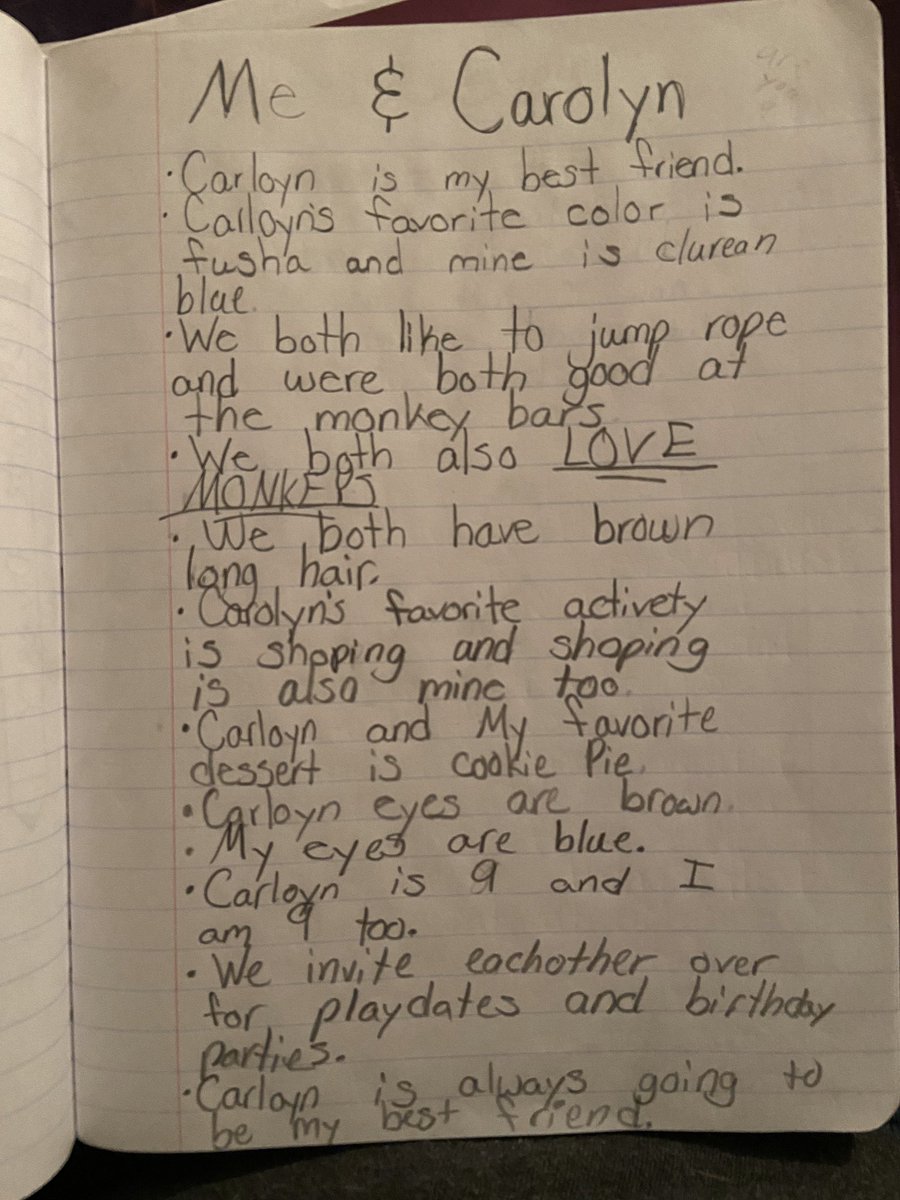 Me & Carolyn
• Carloyn is my best friend.
• Carloyn's favorite color is
fusha and mine is clurean
blue.
• We both like to jump rope
and were both good at
the monkey bars.
• We both also LOVE
MONKEYS
• We both have brown
long hair.
• Carolyn's favorite activety
is shoping and shoping
is also mine too.
• Carloyn and My favorite
dessert is cookie Pie.
• Carloyn eyes are brown.
• My eyes are blue.
• Carloyn is 9 and I
am 9 too.
• We invite eachother over
for playdates and birthday
parties.
• Carloyn is always going to
be my best friend.